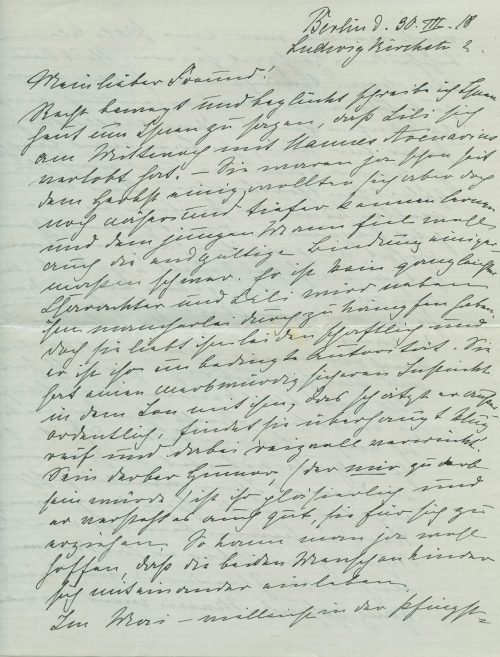 Berlin d. 30. III. 18
Ludwigkirchstr 2.
Mein lieber Freund!
Recht bewegt und beglückt schreibe ich Ihnen
heut um Ihnen zu sagen, daß Lili sich
am Mittwoch mit Hannes Avenarius
verlobt hat. – Sie waren ja schon seit
dem Herbst einig, wollten sich aber doch
noch näher und tiefer kennen lernen
und dem jungen Mann fiel wohl
auch die endgültige Bindung einiger
massen schwer. Er ist kein ganz leichter
Charackter und Lili wird neben
ihm mancherlei durchzukämpfen haben
doch sie liebt ihn leidenschaftlich und
er ist ihr unbedingte Autorität. Sie
hat einen merkwürdig sicheren Instinkt
in dem Ton mit ihm, das schätzt er außer
ordentlich, findet sie überhaupt klug
reif und dabei reizvoll
Sein derber Humor, (der mir zu derb
sein würde) ist ihr pläsierlich und
er versteht es auch gut, sie für sich zu
erziehen. So kann man ja wohl
hoffen, daß die beiden Menschenkinder
sich miteinander einleben.
Im Mai – vielleicht in der Pfingst=